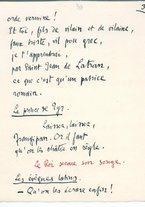 orde vermine !
Et toi, fils de vilain et de vilaine,
faux hoste, vil pore grec,
je t'apprendrai,
par Saint Jean de Latran,
ce que c'est qu'un patrice
romain.
Le prince de Pyr.
Laissez, laissez,
Frangipan. Or il faut
qu'on les châtie en règle.
Le Roi secoue son songe.
Les évêques latins.
— Qu'on les écrase enfin !